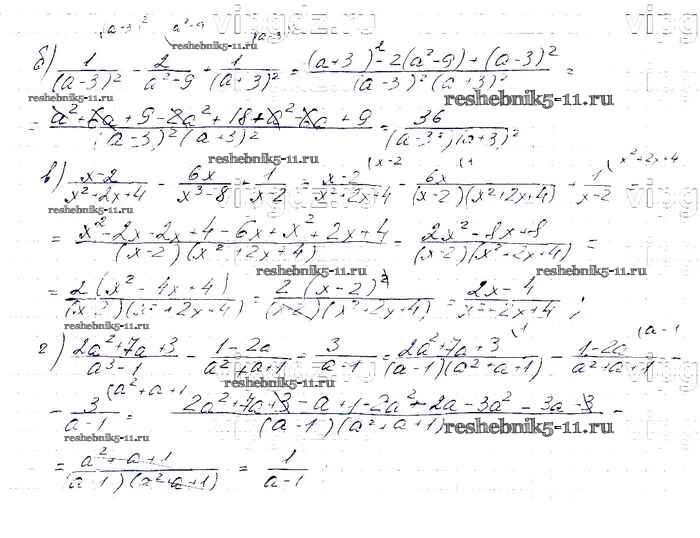 (a-3)² a²-9 (a-3)
reshebnik5-11.ru
б) 1/(a-3)² - 2/(a²-9) + 1/(a+3)² = ((a+3)² - 2(a²-9) + (a-3)²)/((a-3)²(a+3)²) =
reshebnik5-11.ru
= (a²+6a+9-2a²+18+a²-6a+9)/((a-3)²(a+3)²) = 36/((a-3)²(a+3)²)
reshebnik5-11.ru
в) (x-2)/(x²+2x+4) - 6x/(x³-8) + 1/(x-2) = (x-2)/(x²+2x+4) (x-2 - 6x/((x-2)(x²+2x+4)) (1 + 1/(x-2) (x²+2x+4 =
reshebnik5-11.ru
= (x²-2x-2x+4-6x+x²+2x+4)/((x-2)(x²+2x+4)) = (2x²-8x+8)/((x-2)(x²+2x+4)) =
reshebnik5-11.ru reshebnik5-11.ru
= 2(x²-4x+4)/((x-2)(x²+2x+4)) = 2(x-2)²/((x-2)(x²+2x+4)) = (2x-4)/(x²-2x+4) ;
reshebnik5-11.ru
г) (2a²+7a+3)/(a³-1) - (1-2a)/(a²+a+1) = 3/(a-1) = (2a²+7a+3)/((a-1)(a²+a+1)) (1 - (1-2a)/(a²+a+1) (a-1 -
reshebnik5-11.ru
- 3/(a-1) (a²+a+1 = (2a²+7a+3-a+1-2a²-2a-3a²-3a-3)/((a-1)(a²+a+1)) =
reshebnik5-11.ru reshebnik5-11.ru
= (a²+a+1)/((a-1)(a²+a+1)) = 1/(a-1)
reshebnik5-11.ru